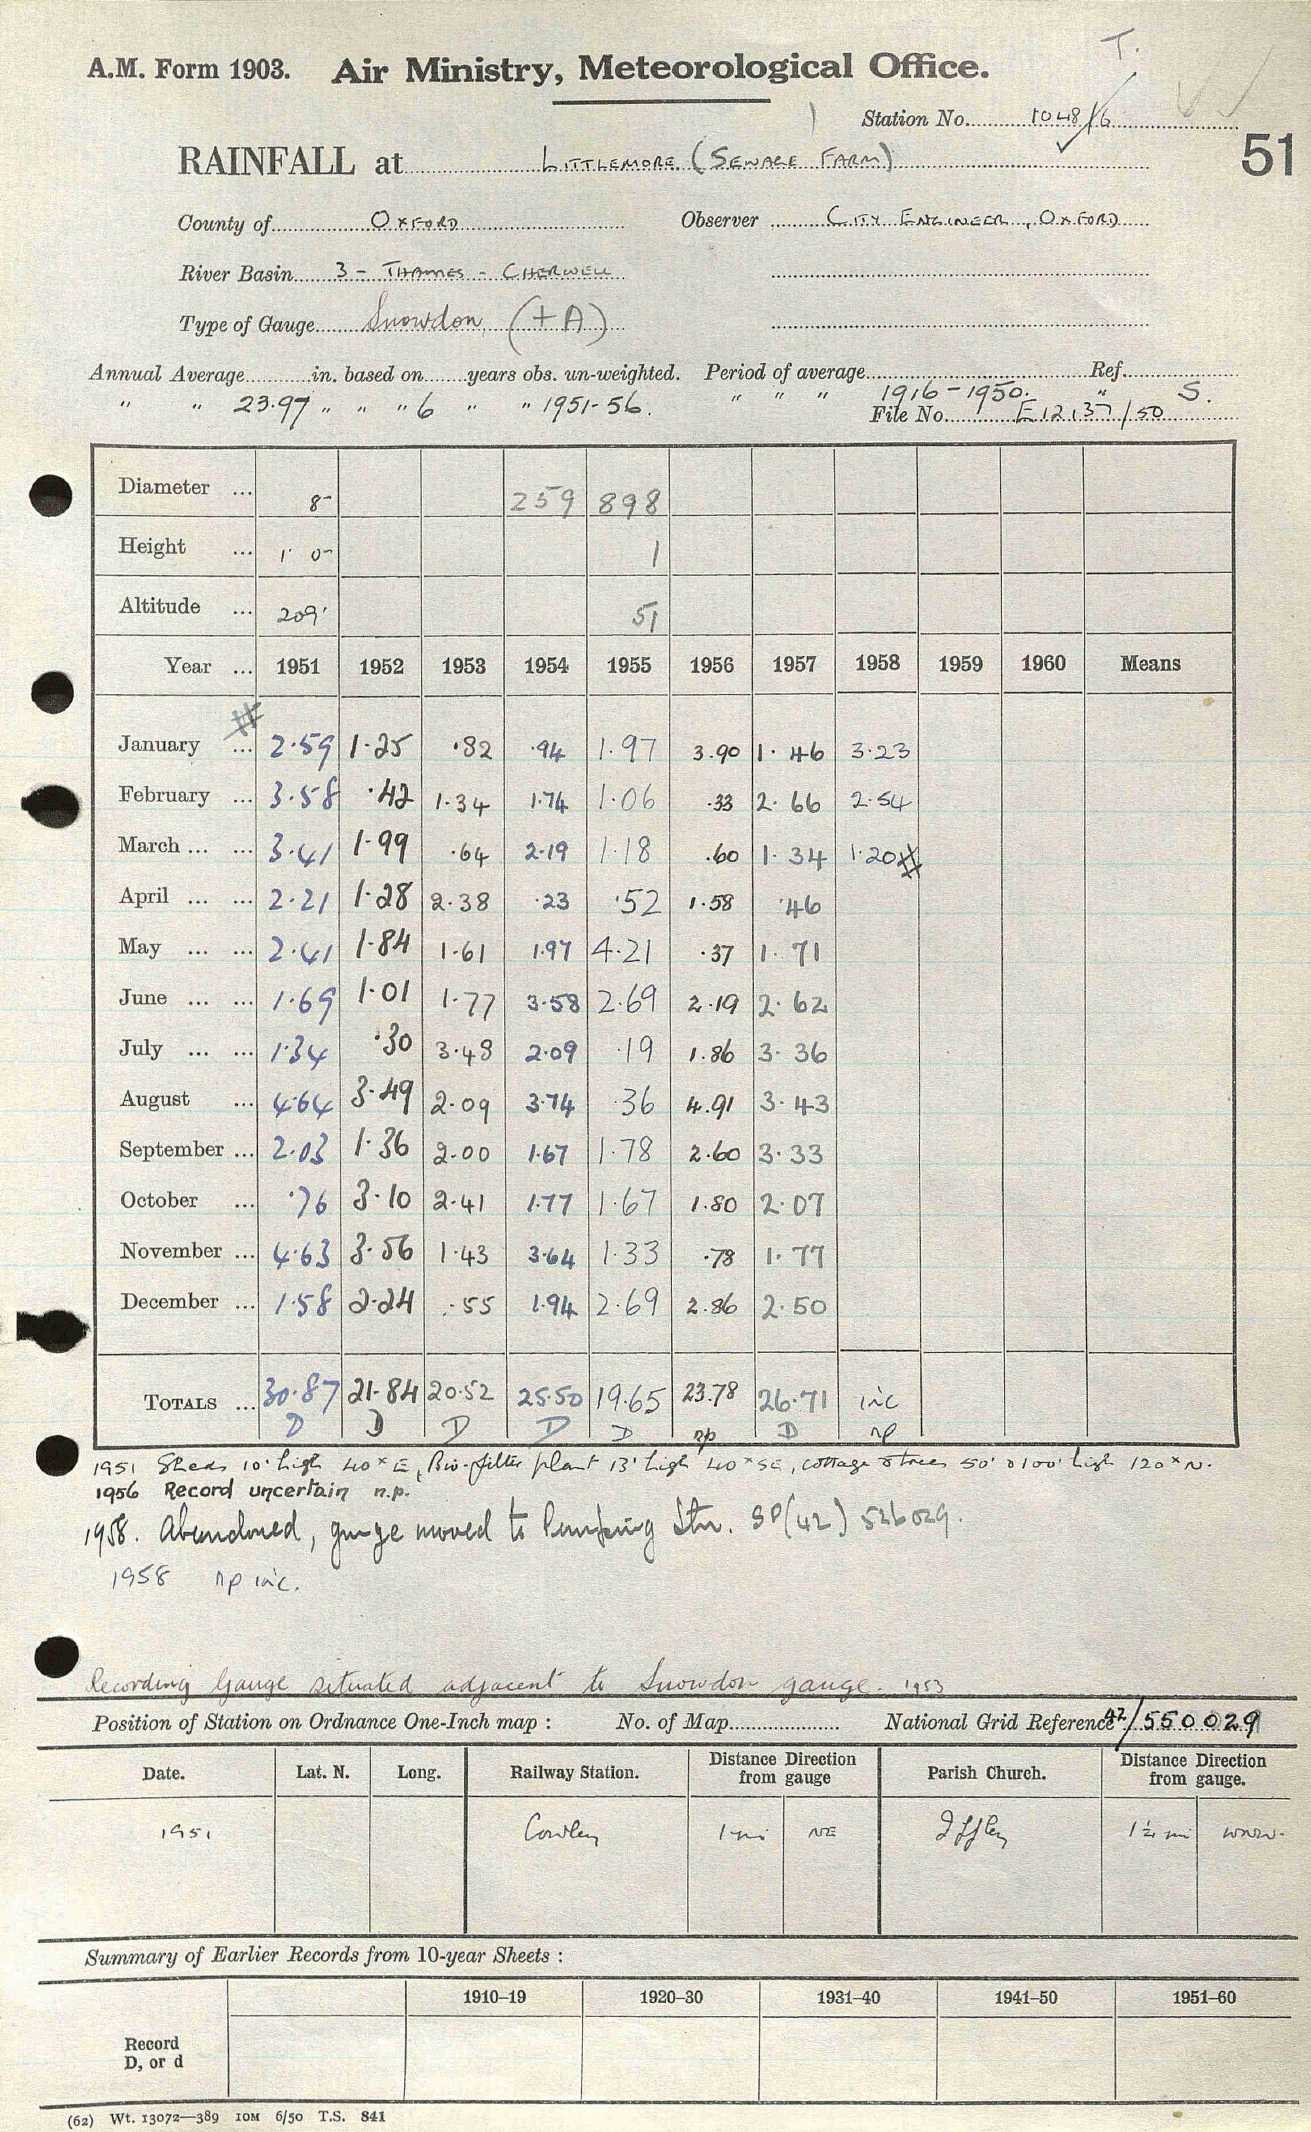 T.
A.M. Form 1903. Air Ministry, Meteorological Office.
Station No. 1048/6
51
RAINFALL at LITTLEMORE (SEWAGE FARM)
County of OXFORD Observer CITY ENGINEER, OXFORD
River Basin 3 - THAMES - CHERWELL
Type of Gauge Snowdon (+A)
Annual Average in. based on years obs. un-weighted. Period of average Ref.
" " 23.97 " " " 6 " " 1951-56. " " " 1916-1950. " S.
File No. E12137/50
Diameter ... 8" 259 898
Height ... 1' 0" 1
Altitude ... 209' 51
Year ... 1951 1952 1953 1954 1955 1956 1957 1958 1959 1960 Means
January ... # 2.59 1.25 .82 .94 1.97 3.90 1.46 3.23
February ... 3.58 .42 1.34 1.74 1.06 .33 2.66 2.54
March ... ... 3.41 1.99 .64 2.19 1.18 .60 1.34 1.20#
April ... ... 2.21 1.28 2.38 .23 .52 1.58 .46
May ... ... 2.41 1.84 1.61 1.97 4.21 .37 1.71
June ... ... 1.69 1.01 1.77 3.58 2.69 2.19 2.62
July ... ... 1.34 .30 3.48 2.09 .19 1.86 3.36
August ... 4.64 3.49 2.09 3.74 .36 4.91 3.43
September ... 2.03 1.36 2.00 1.67 1.78 2.60 3.33
October ... .76 3.10 2.41 1.77 1.67 1.80 2.07
November ... 4.63 3.56 1.43 3.64 1.33 .78 1.77
December ... 1.58 2.24 .55 1.94 2.69 2.86 2.50
TOTALS ... 30.87 21.84 20.52 25.50 19.65 23.78 26.71 inc
D D D D D np D np
1951 Sheds 10' high 40x E, Bio-filter plant 13' high 40x SE, cottage & trees 50' & 100' high 120x N.
1956 Record uncertain n.p.
1958. Abandoned, gauge moved to Pumping Stn. SP(42) 526029.
1958 np inc.
Recording Gauge situated adjacent to Snowdon gauge. 1953
Position of Station on Ordnance One-Inch map : No. of Map National Grid Reference 42/550029
Date. Lat. N. Long. Railway Station. Distance Direction from gauge Parish Church. Distance Direction from gauge.
1951 Cowley 1 mi NE Iffley 1½ mi WNW.
Summary of Earlier Records from 10-year Sheets :
1910–19 1920–30 1931–40 1941–50 1951–60
Record
D, or d
(62) Wt. 13072—389 10M 6/50 T.S. 841